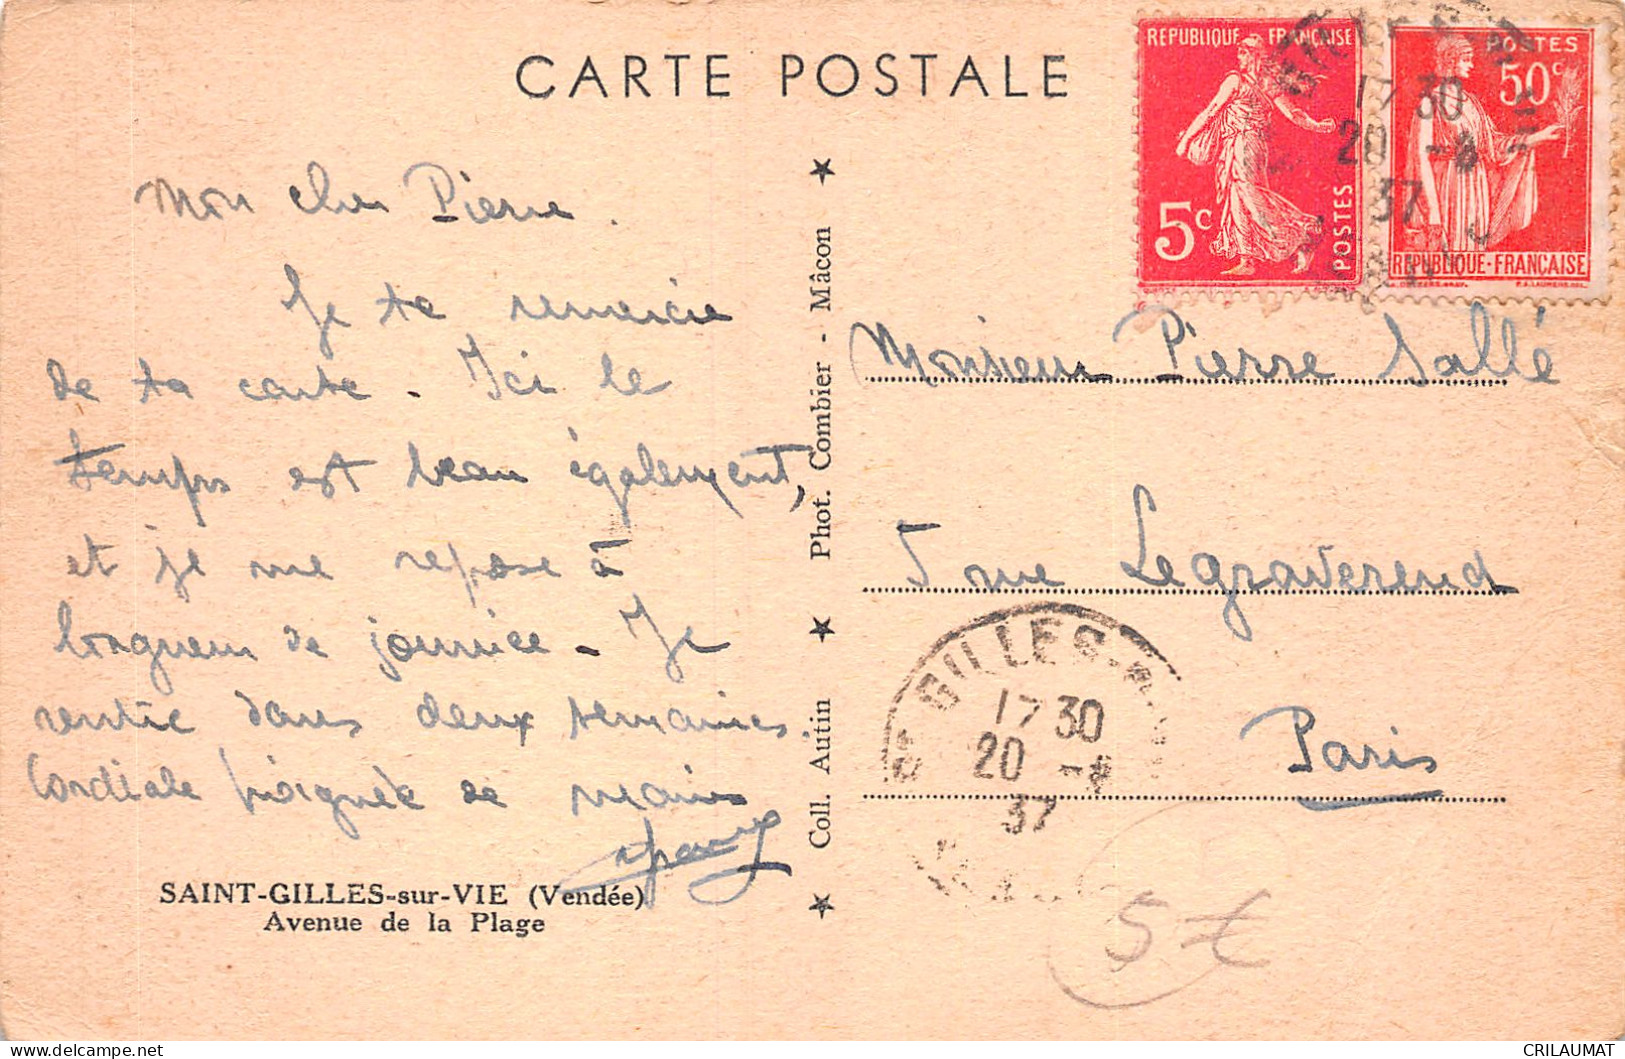 CARTE POSTALE
REPUBLIQUE FRANÇAISE
5c
POSTES
POSTES
50c
REPUBLIQUE-FRANÇAISE
17 30
20 -
37
Mon cher Pierre.
Je te remercie
de ta carte. Ici le
temps est beau également,
et je me repose à
longueur de journée. Je
rentre dans deux semaines.
Cordiale poignée de mains
SAINT-GILLES-sur-VIE (Vendée)
Avenue de la Plage
Coll. Autin ★ Phot. Combier - Mâcon ★
Monsieur Pierre Sallé
5 rue Legraverend
Paris
ST GILLES-
17 30
20 -
37
5€
delcampe.net
CRILAUMAT